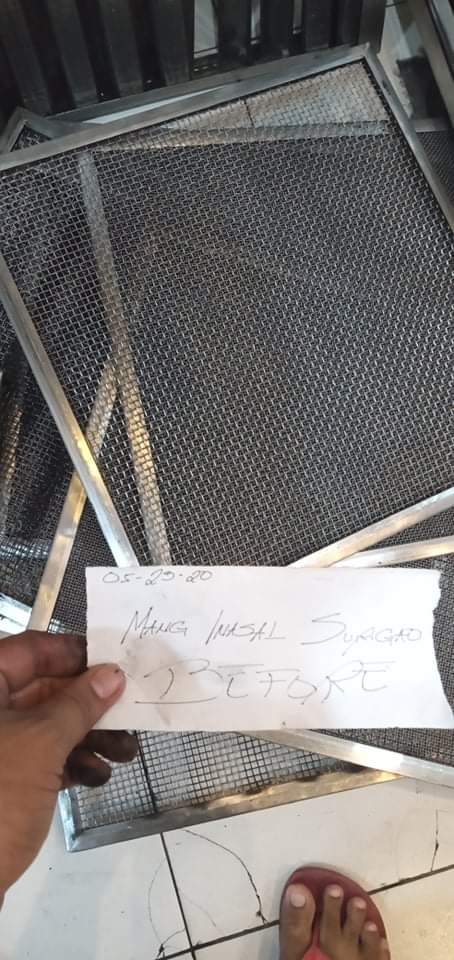 05-29-20
MANG INASAL SURIGAO
BEFORE